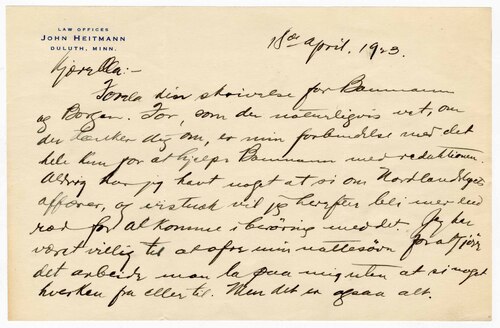 LAW OFFICES
JOHN HEITMANN
DULUTH, MINN.
18de April, 1923.
Kjære Ella:-
Forela din skrivelse for Baumann
og Borgen. For, som du naturligvis vet, om
du tænker dig om, er min forbindelse med det
hele kun for at hjelpe Baumann med redaktionen.
Aldrig har jeg havt noget at si om Nordlandslagets
affærer, og vistnok vil jeg herefter bli mer end
ræd for at komme i berøring med det. Jeg har
været villig til at ofre min nattesøvn for at gjøre
det arbeide man la paa mig uten at si noget
hverken fra eller til. Men det er ogsaa alt.